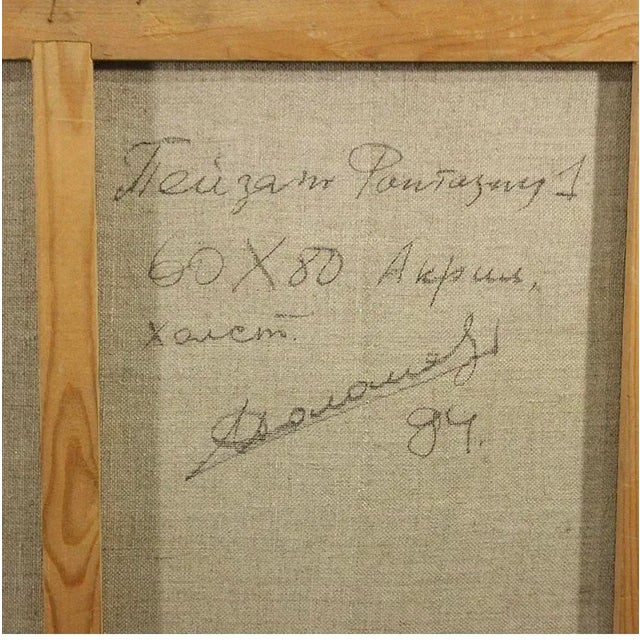 Пейзаж Фантазия 1
60X80 Акрил,
холст.
84.